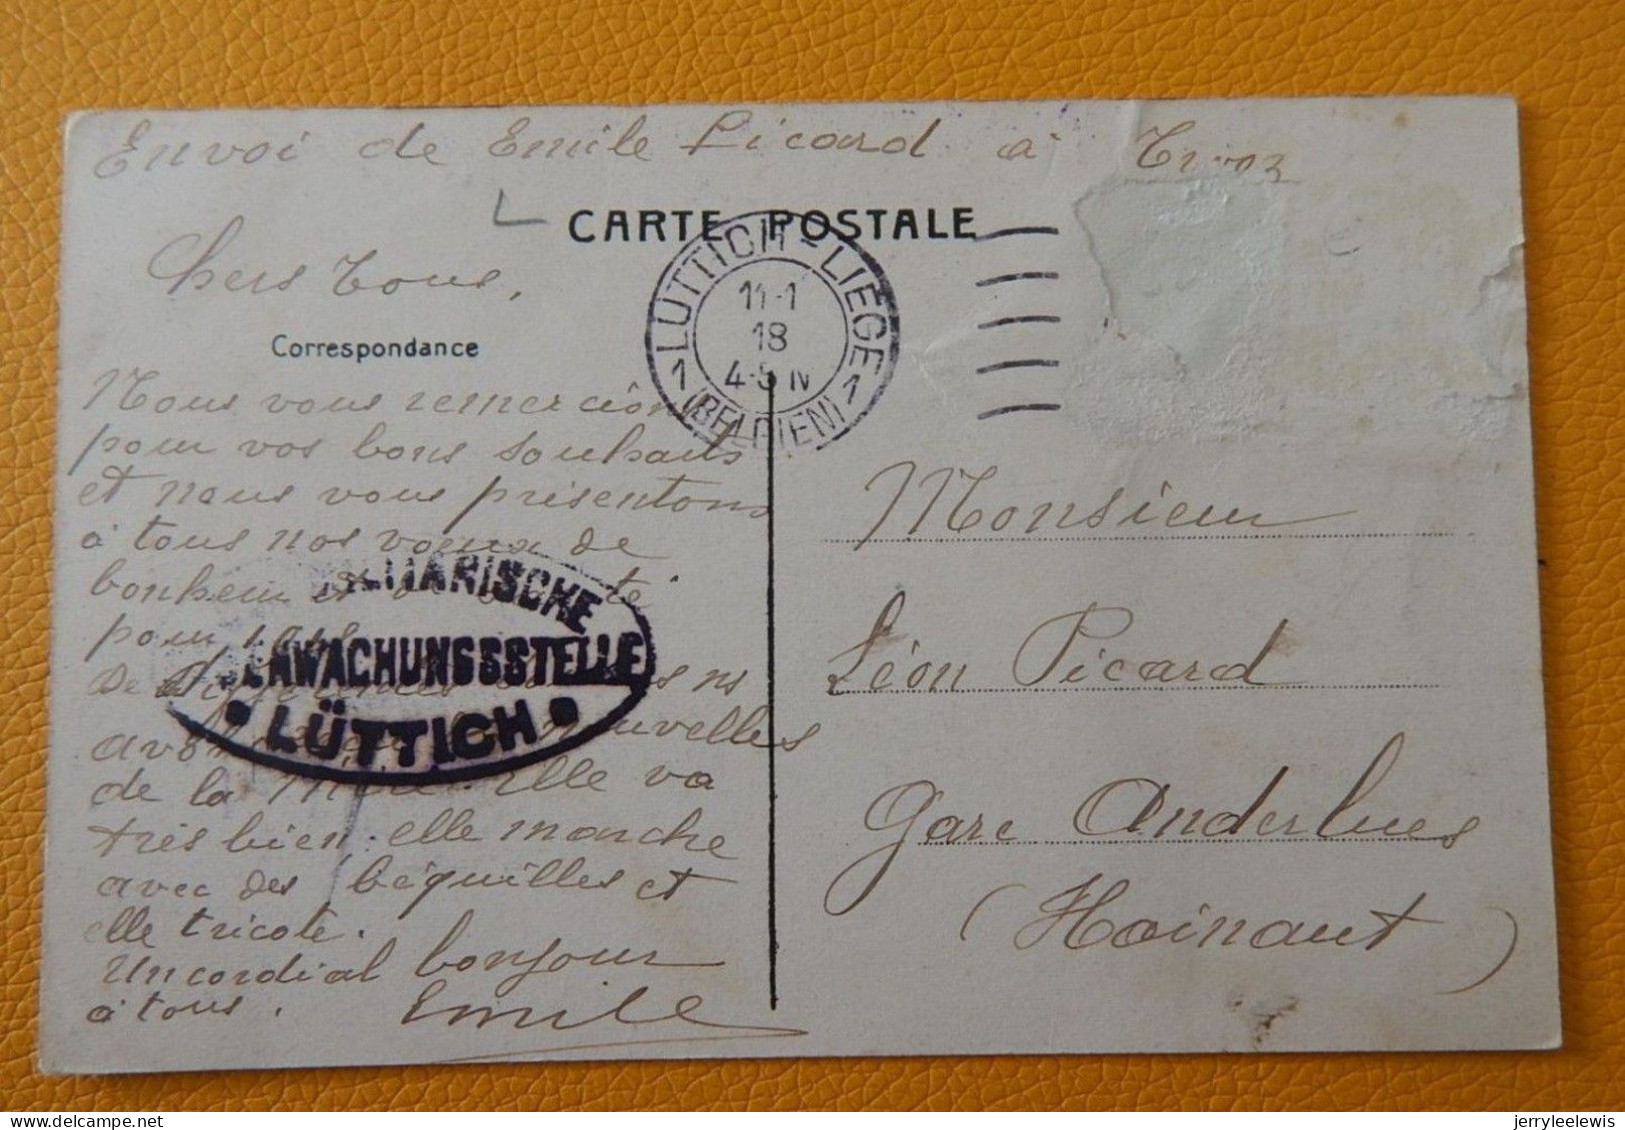 Envoi de Emile Picard à Trooz
CARTE POSTALE
LÜTTICH-LIEGE
11-1
18
4-5 N
1 (BELGIEN) 1
Chers Tous,
Correspondance
Nous vous remercions
pour vos bons souhaits
et nous vous présentons
à tous nos voeux de
bonheur et de santé
pour 1918
De
avons nouvelles
de la Mère. Elle va
très bien; elle marche
avec des béquilles et
elle tricote.
Un cordial bonjour
à tous. Emile
MILITÄRISCHE
ÜBERWACHUNGSSTELLE
• LÜTTICH •
Monsieur
Léon Picard
Gare Anderlues
(Hainaut)
jerryleelewis